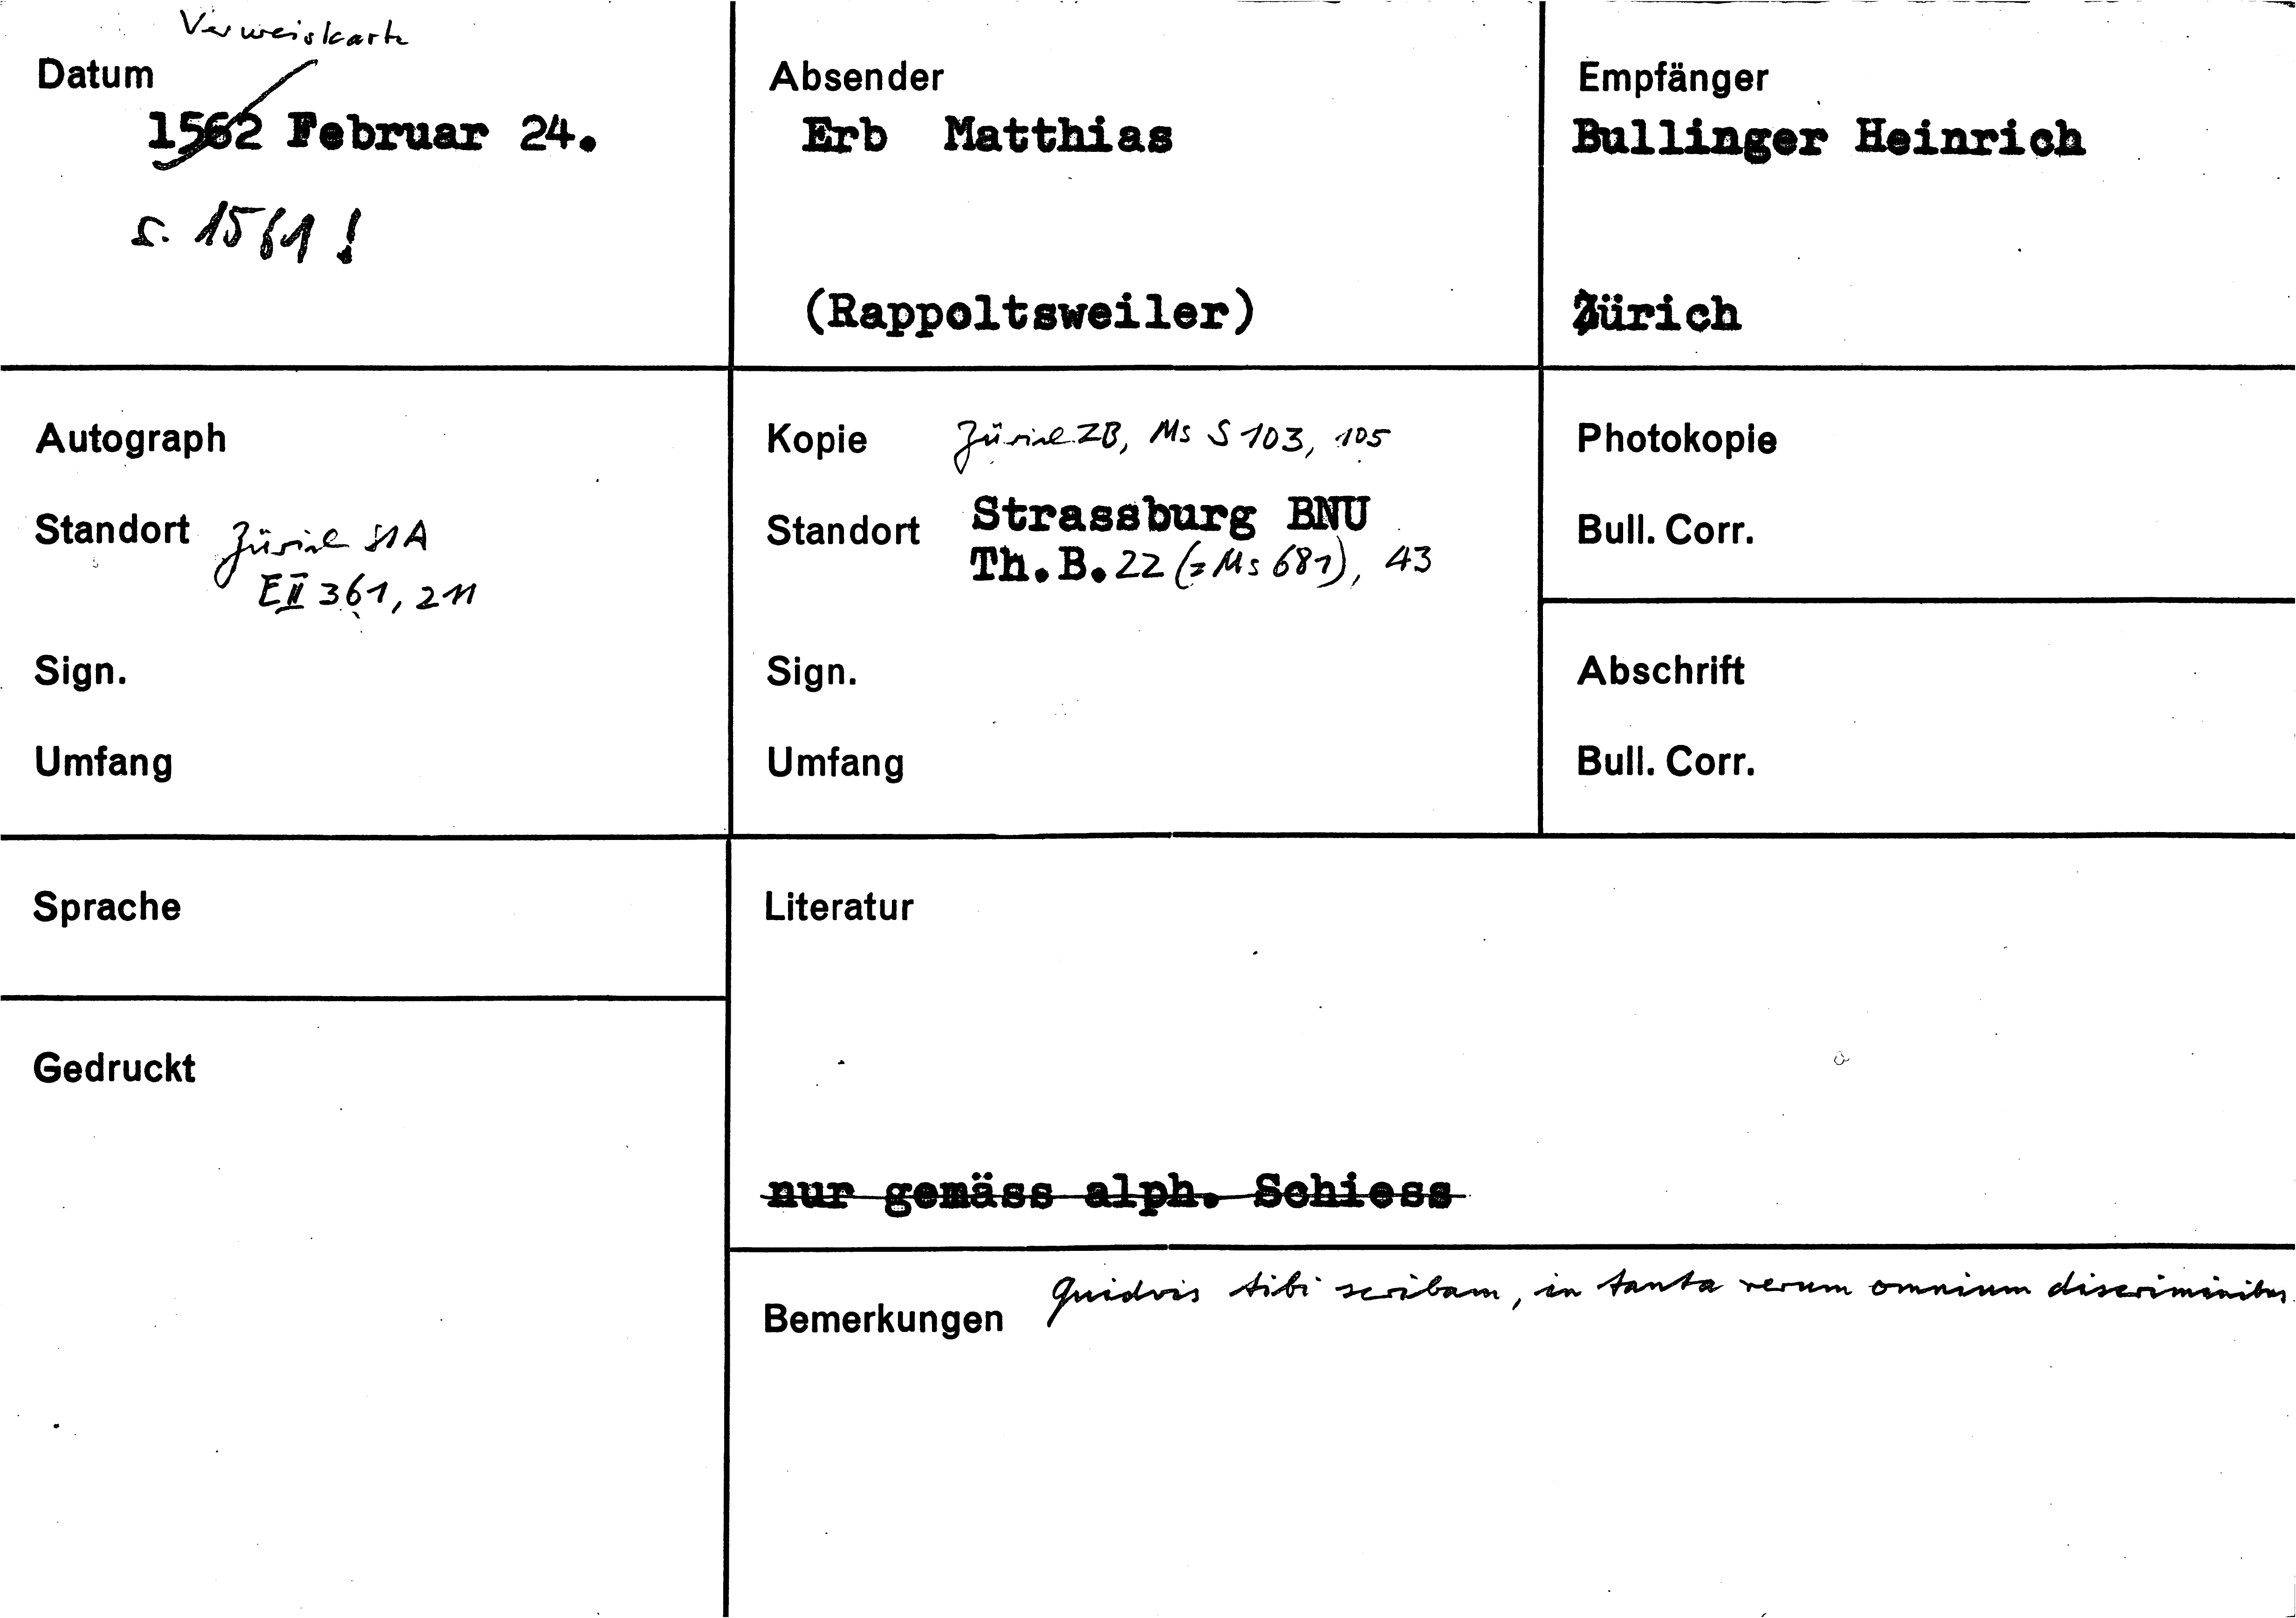 Verweiskarte
Datum
1562 Februar 24.
s. 1561!
Absender
Erb Matthias
(Rappoltsweiler)
Empfänger
Bullinger Heinrich
Zürich
Autograph
Standort Zürich StA
E II 361, 211
Sign.
Umfang
Kopie Zürich ZB, Ms S 103, 105
Standort Strassburg BNU
Th. B. 22 (= Ms 681), 43
Sign.
Umfang
Photokopie
Bull. Corr.
Abschrift
Bull. Corr.
Sprache
Gedruckt
Literatur
nur gemäss alph. Schiess
Bemerkungen Quidvis tibi scribam, in tanta rerum omnium discriminibus